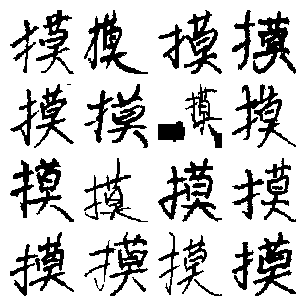 摸摸摸摸
摸摸摸摸
摸摸摸摸
摸摸摸摸